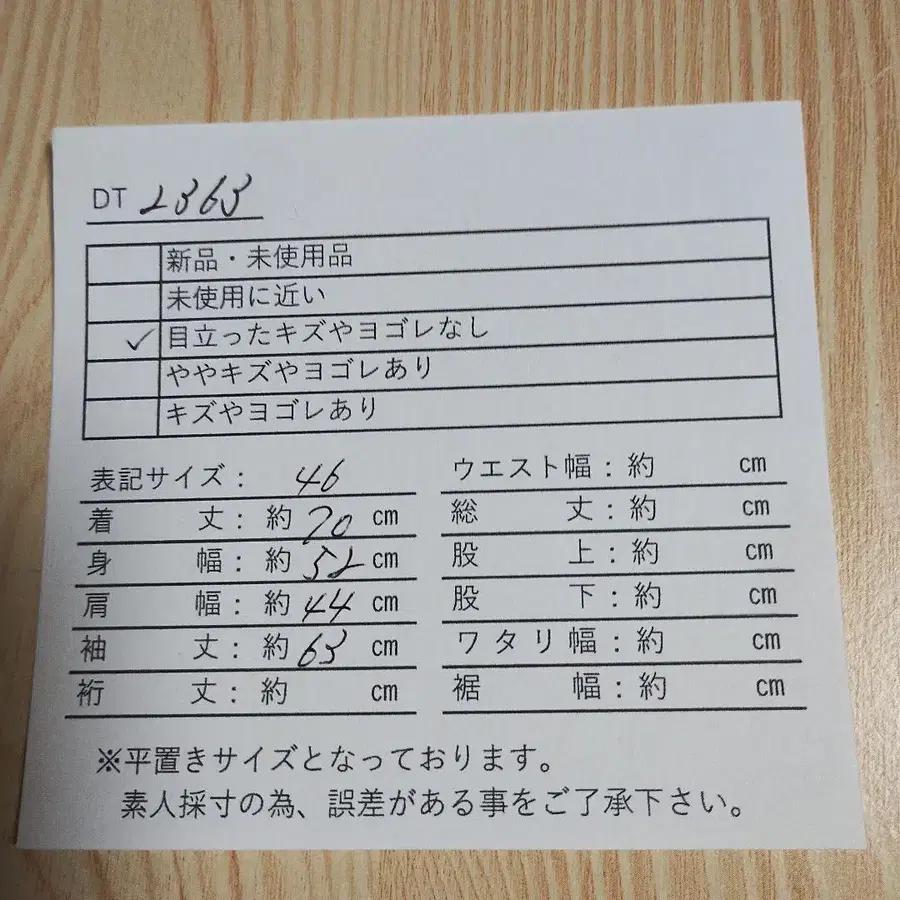 DT 2363
新品・未使用品
未使用に近い
✓ 目立ったキズやヨゴレなし
ややキズやヨゴレあり
キズやヨゴレあり
表記サイズ： 46
着丈：約 70 cm
身幅：約 52 cm
肩幅：約 44 cm
袖丈：約 63 cm
裄丈：約 cm
ウエスト幅：約 cm
総丈：約 cm
股上：約 cm
股下：約 cm
ワタリ幅：約 cm
裾幅：約 cm
※平置きサイズとなっております。
素人採寸の為、誤差がある事をご了承下さい。